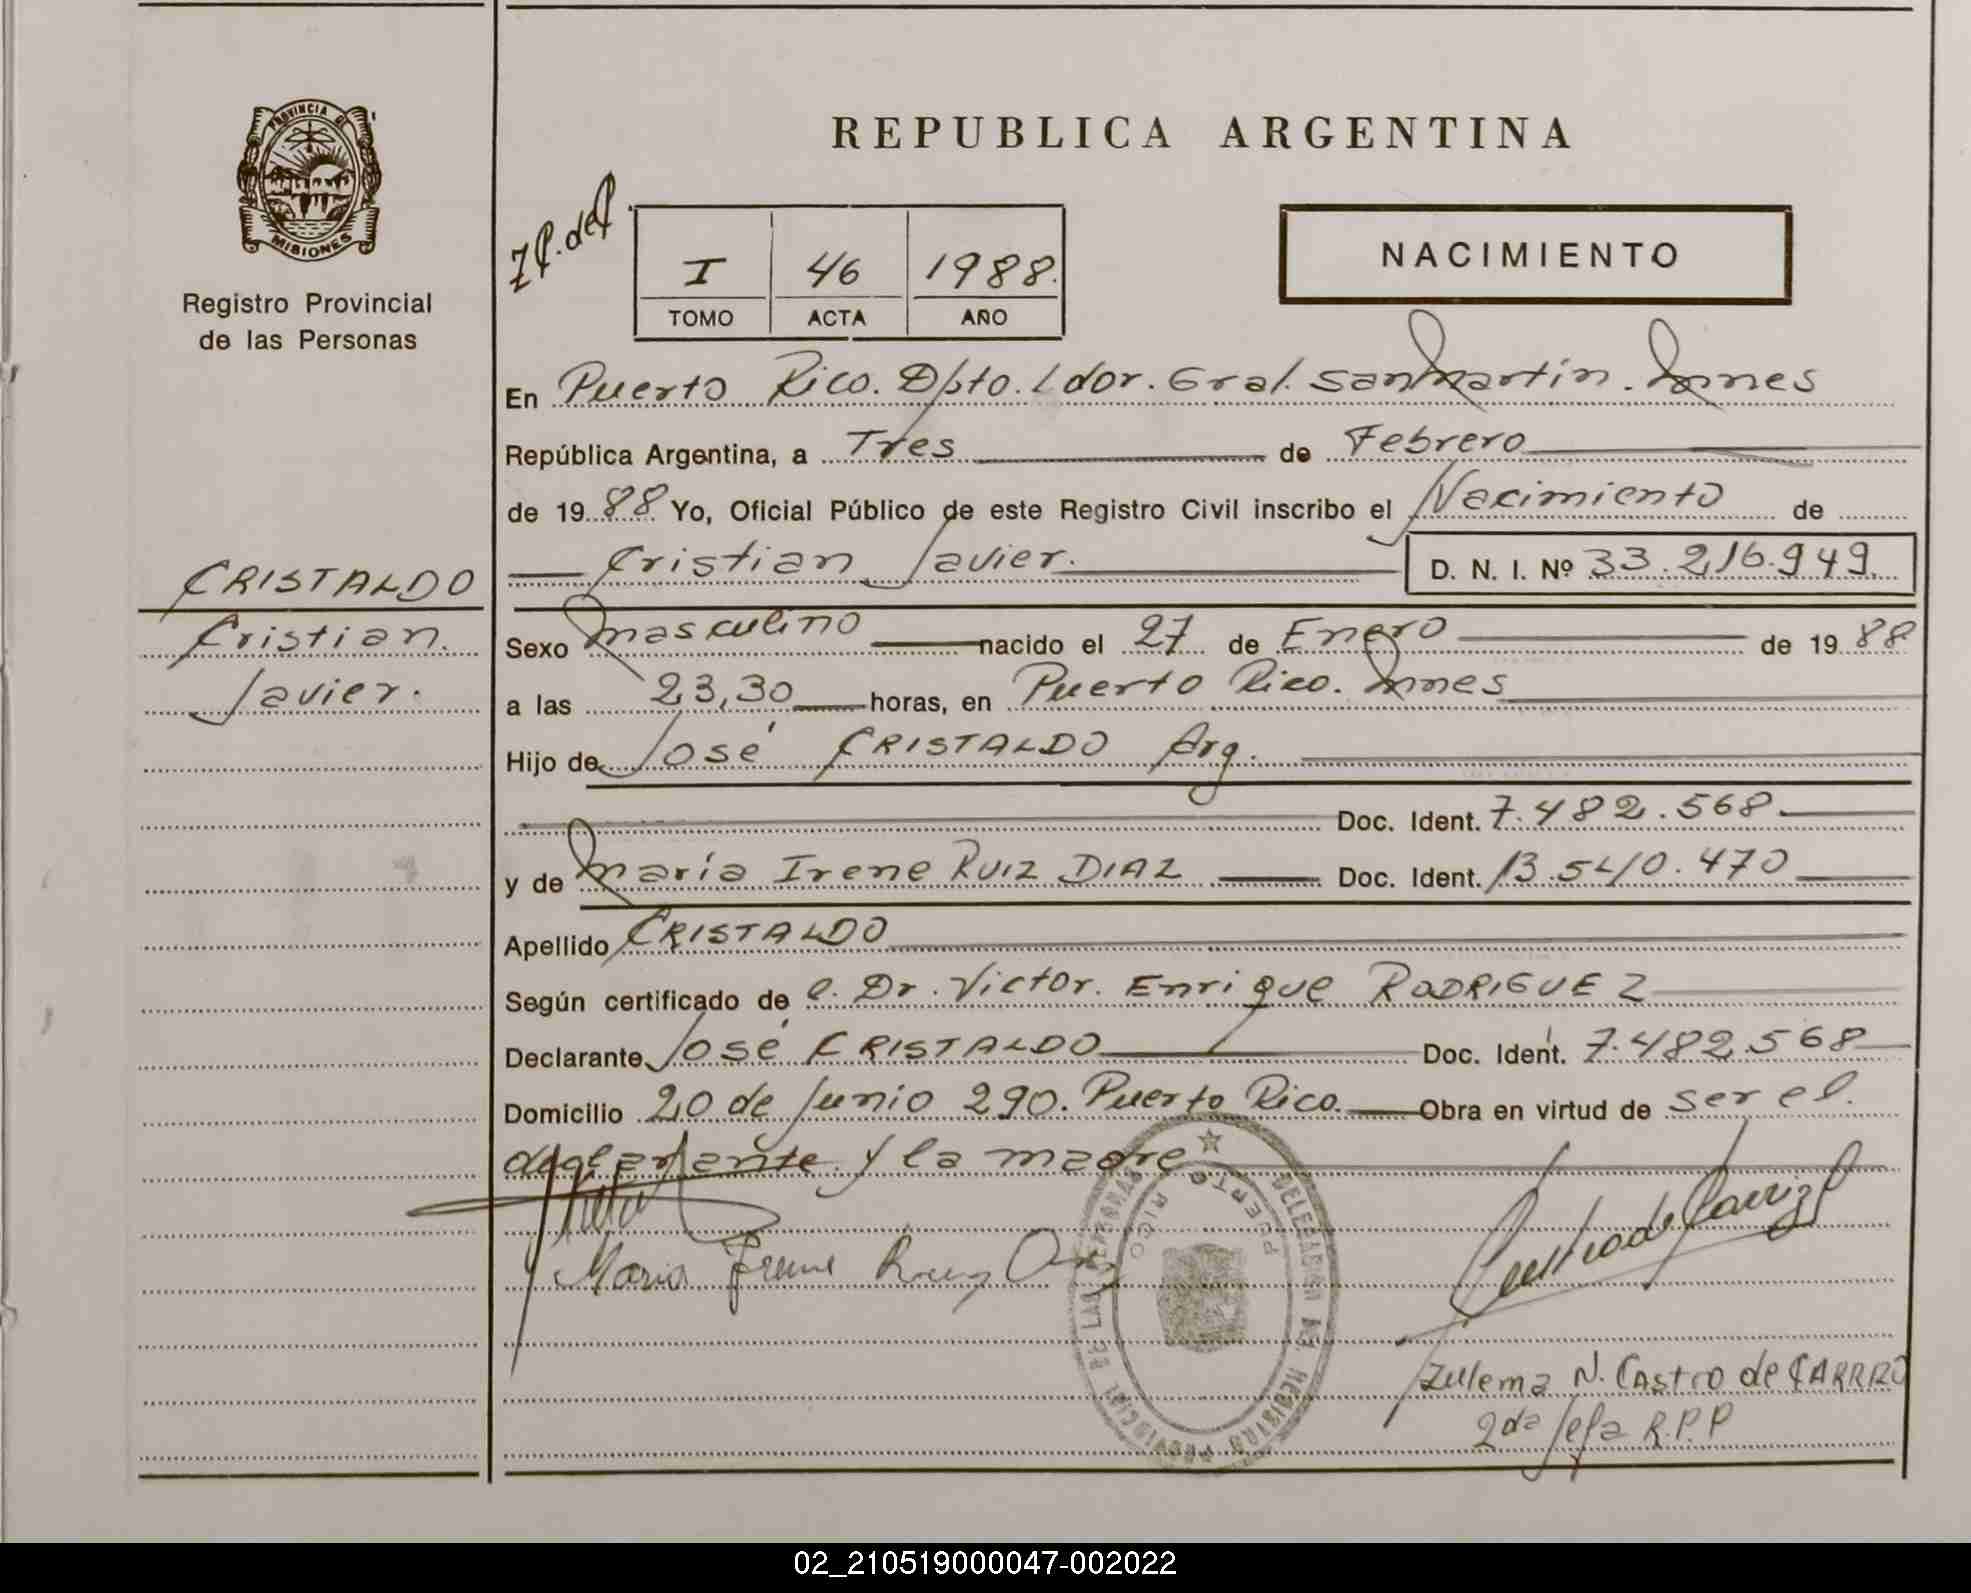 PROVINCIA DE
MISIONES
Registro Provincial
de las Personas
CRISTALDO
Cristian
Javier.
REPUBLICA ARGENTINA
I 46 1988.
TOMO ACTA AÑO
NACIMIENTO
En Puerto Rico. Dpto. Ldor. Gral. San Martín. Mnes
República Argentina, a Tres de Febrero
de 1988 Yo, Oficial Público de este Registro Civil inscribo el Nacimiento de
Cristian Javier. D. N. I. Nº 33.216.949
Sexo masculino nacido el 27 de Enero de 1988
a las 23,30 horas, en Puerto Rico. Mnes
Hijo de José CRISTALDO Arg.
Doc. Ident. 7.482.568
y de María Irene RUIZ DIAZ Doc. Ident. 13.540.470
Apellido CRISTALDO
Según certificado de e. Dr. Victor. Enrique RODRIGUEZ
Declarante José CRISTALDO Doc. Ident. 7.482.568
Domicilio 20 de Junio 290. Puerto Rico. Obra en virtud de ser el.
declarante y la madre
Maria Irene Ruiz
DELEGACION DEL REGISTRO PROVINCIAL DE LAS PERSONAS
PUERTO RICO
Castro de Carrizo
Zulema N. Castro de CARRIZO
2da Jefa R.P.P
02_210519000047-002022